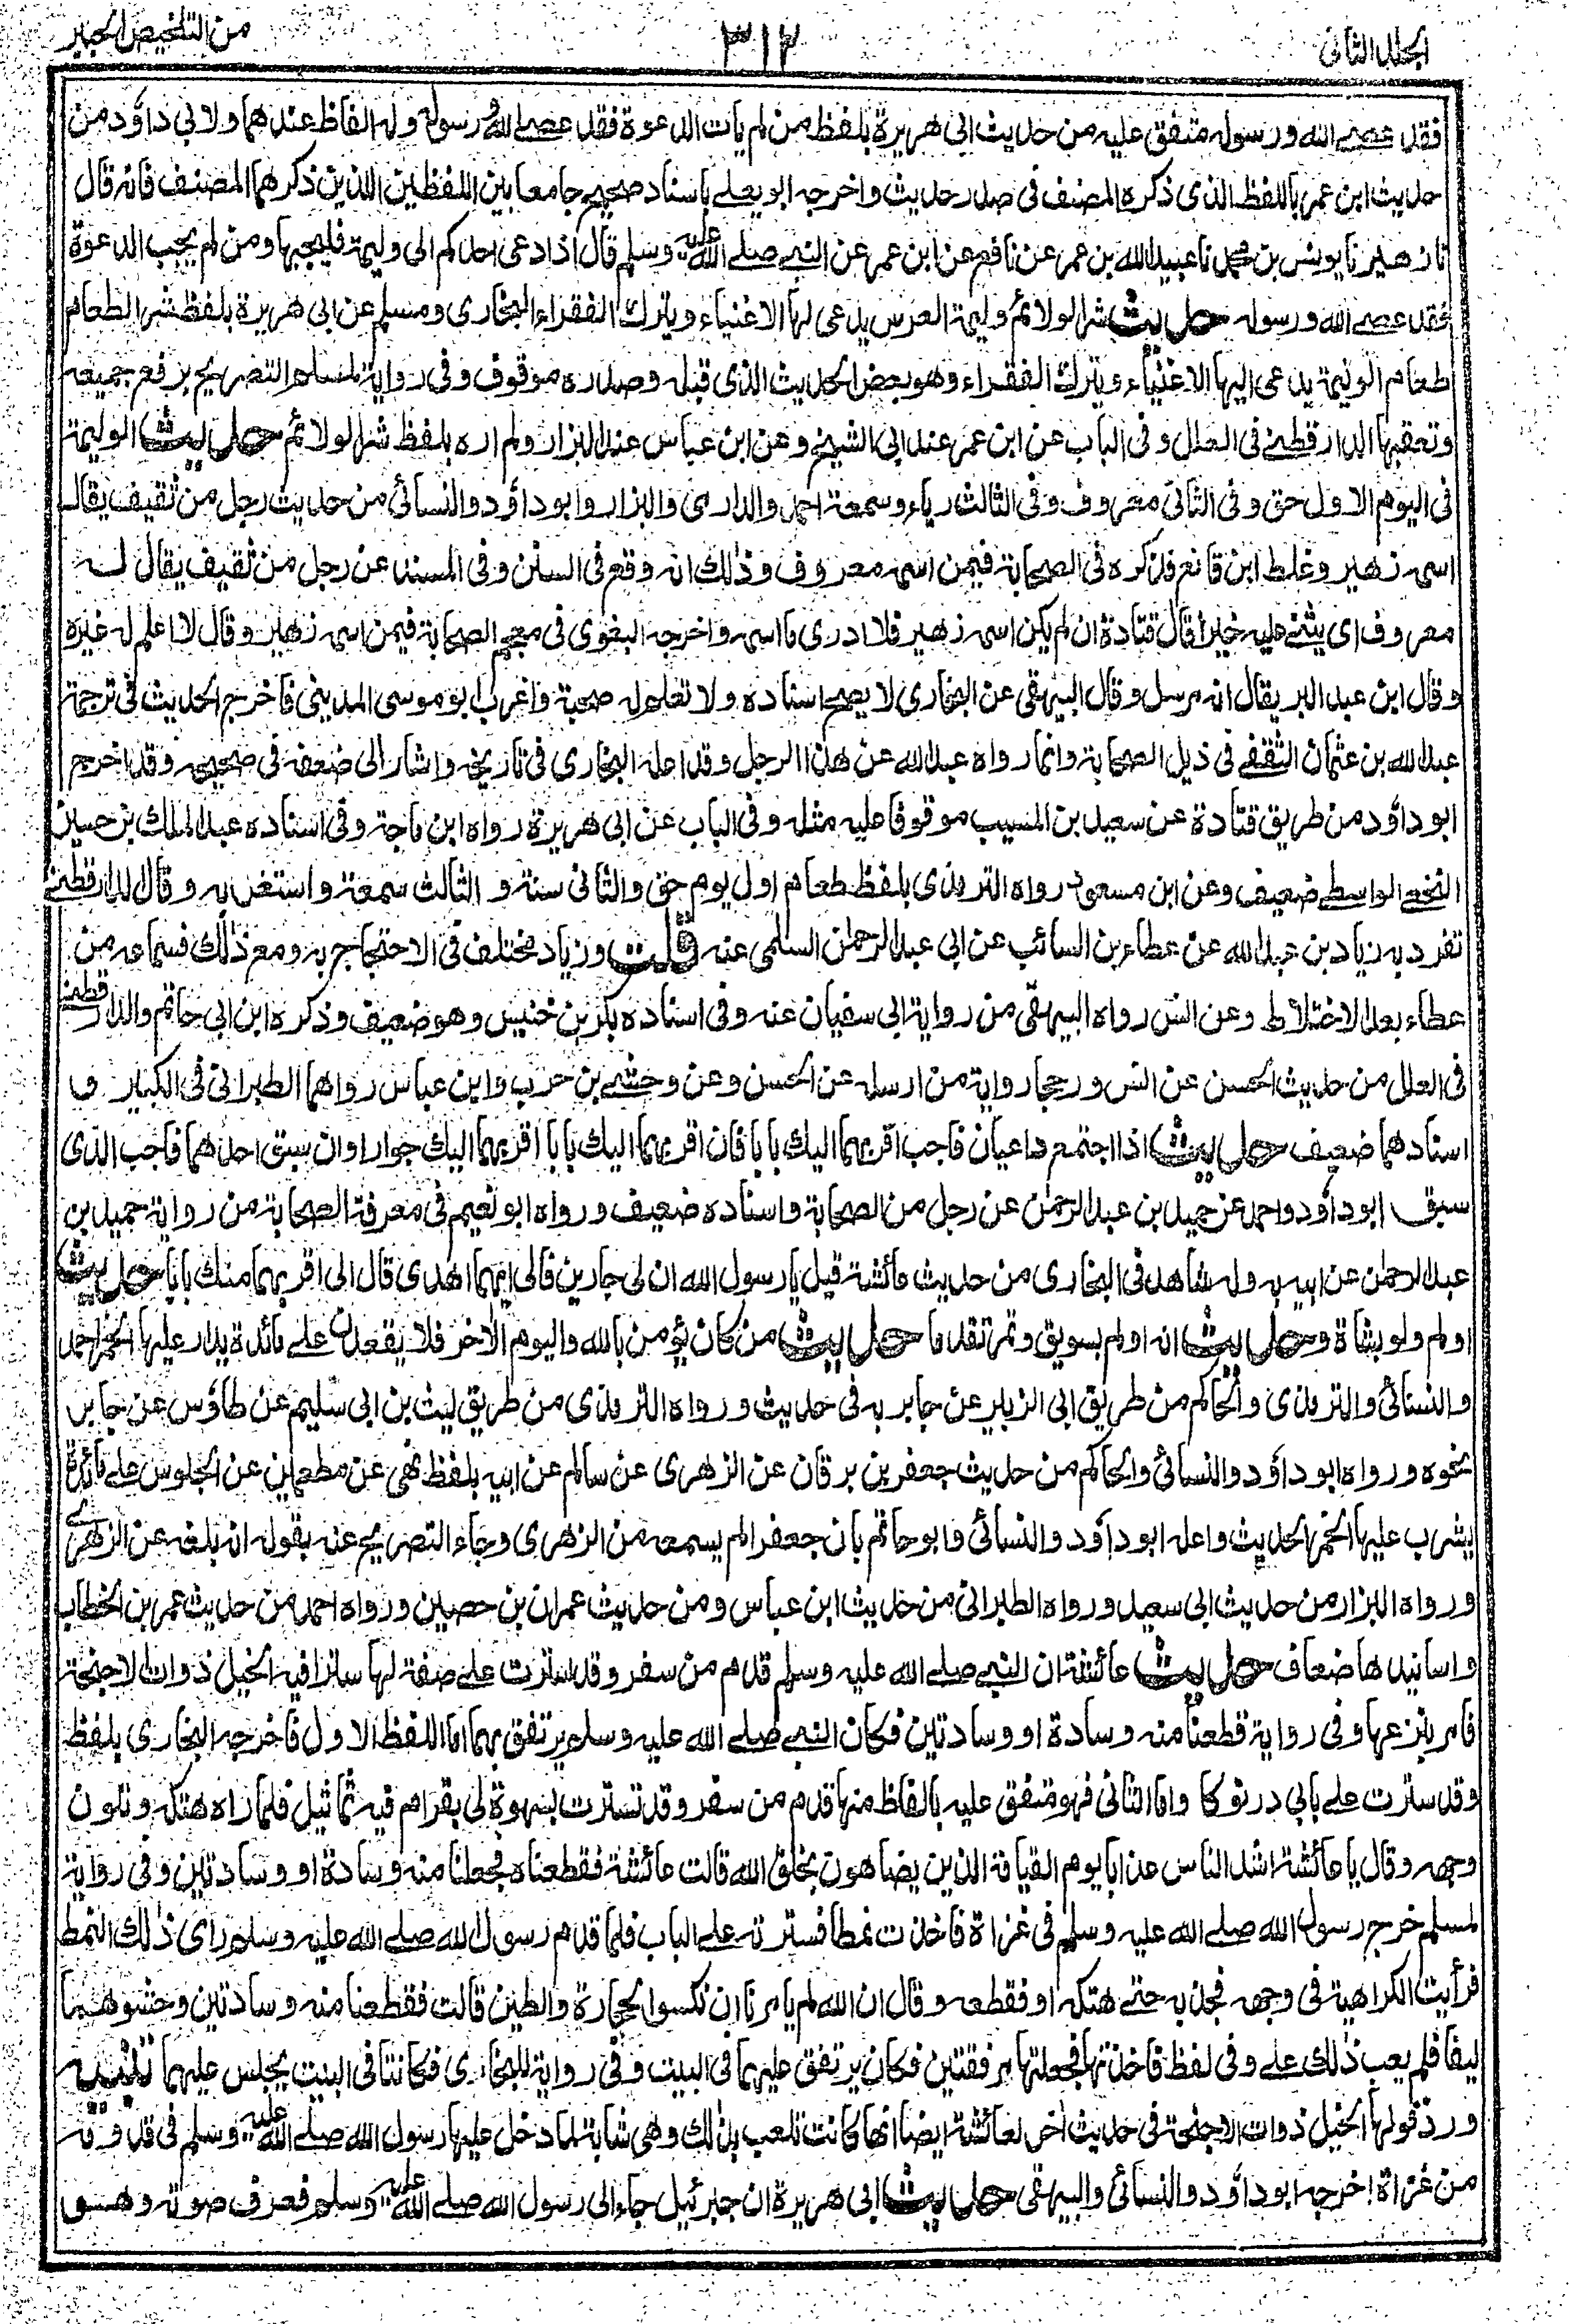 الجلد الثانى
٣١٢
من التلخيص الحبير
فقد عصے الله ورسوله متفق عليه من حديث ابى هريرة بلفظ من لم يأت الدعوة فقد عصے الله ورسوله وله الفاظ عندهما ولابى داؤد من
حديث ابن عمر باللفظ الذى ذكره المصنف فى صدر حديث واخرجه ابو يعلے باسناد صحيح جامعا بين اللفظين اللذين ذكرهما المصنف فانه قال
نا زهير نا يونس بن محمد نا عبيد الله بن عمر عن نافع عن ابن عمر عن النبے صلے الله عليه وسلم قال اذا دعى احدكم الى وليمة فليجبها ومن لم يجب الدعوة
فقد عصے الله ورسوله حديث شر الولائم وليمة العرس يدعى لها الاغنياء ويترك الفقراء البخارى ومسلم عن ابى هريرة بلفظ شر الطعام
طعام الوليمة يدعى اليها الاغنياء ويترك الفقراء وهو بعض الحديث الذى قبله وصدره موقوف وفى رواية لمسلم التصريح برفع جميعه
وتعقبها الدارقطنے فى العلل وفى الباب عن ابن عمر عند ابى الشيخ وعن ابن عباس عند البزار ولم اره بلفظ شر الولائم حديث الوليمة
فى اليوم الاول حق وفى الثانى معروف وفى الثالث رياء وسمعة احمد والدارمى والبزار وابو داؤد والنسائى من حديث رجل من ثقيف يقال
اسمه زهير وغلط ابن قانع فذكره فى الصحابة فيمن اسمه معروف وذلك انه وقع فى السنن وفى المسند عن رجل من ثقيف يقال له
معروف اى يثنے عليه خيرا قال قتادة ان لم يكن اسمه زهير فلا ادرى ما اسمه واخرجه البغوى فى معجم الصحابة فيمن اسمه زهير وقال لا اعلم له غيره
وقال ابن عبد البر يقال انه مرسل وقال البيهقى عن البخارى لا يصح اسناده ولا تعلم له صحبة واغرب ابو موسى المدينى فاخرج الحديث فى ترجمة
عبد الله بن عثمان الثقفے فى ذيل الصحابة وانما رواه عبد الله عن هذا الرجل وقد اعله البخارى فى تاريخه واشار الى ضعفه فى صحيحه وقد اخرجه
ابو داؤد من طريق قتادة عن سعيد بن المسيب موقوفا عليه مثله وفى الباب عن ابى هريرة رواه ابن ماجة وفى اسناده عبد الملك بن حسين
النخعے الواسطے ضعيف وعن ابن مسعود رواه الترمذى بلفظ طعام اول يوم حق والثانى سنة و الثالث سمعة واستغربه وقال الدارقطنے
تفرد به زياد بن عبد الله عن عطاء بن السائب عن ابى عبد الرحمن السلمى عنه قلت وزياد مختلف فى الاحتجاج به ومع ذلك فسماعه من
عطاء بعد الاختلاط وعن انس رواه البيهقى من رواية ابى سفيان عنه وفى اسناده بكر بن خنيس وهو ضعيف وذكره ابن ابى حاتم والدارقطنے
فى العلل من حديث الحسن عن انس ورجحا رواية من ارسله عن الحسن وعن وحشے بن حرب وابن عباس رواهما الطبرانى فى الكبير و
اسنادهما ضعيف حديث اذا اجتمع داعيان فاجب اقربهما اليك بابا فان اقربهما اليك بابا اقربهما اليك جوارا وان سبق احدهما فاجب الذى
سبق ابو داؤد واحمد عن حميد بن عبد الرحمن عن رجل من الصحابة واسناده ضعيف ورواه ابو نعيم فى معرفة الصحابة من رواية حميد بن
عبد الرحمن عن ابيه به وله شاهد فى البخارى من حديث عائشة قيل يا رسول الله ان لى جارين فالى ايهما اهدى قال الى اقربهما منك بابا حديث
اولم ولو بشاة وحديث انه اولم بسويق وتمر تقدما حديث من كان يؤمن بالله واليوم الاخر فلا يقعدن علے مائدة يدار عليها الخمر احمد
والنسائى والترمذى والحاكم من طريق ابى الزبير عن جابر به فى حديث ورواه الترمذى من طريق ليث بن ابى سليم عن طاؤس عن جابر
نحوه ورواه ابو داؤد والنسائى والحاكم من حديث جعفر بن برقان عن الزهرى عن سالم عن ابيه بلفظ نهى عن مطعمين عن الجلوس علے مائدة
يشرب عليها الخمر الحديث واعله ابو داؤد والنسائى وابو حاتم بان جعفرا لم يسمعه من الزهرى وجاء التصريح عنه بقوله انه بلغه عن الزهرى
ورواه البزار من حديث ابى سعيد ورواه الطبرانى من حديث ابن عباس ومن حديث عمران بن حصين ورواه احمد من حديث عمر بن الخطاب
واسانيدها ضعاف حديث عائشة ان النبے صلے الله عليه وسلم قدم من سفر وقد سترت علے صفة لها سترا فيه الخيل ذوات الاجنحة
فامر بنزعها وفى رواية قطعنا منه وسادة او وسادتين فكان النبے صلے الله عليه وسلم يرتفق بهما اما اللفظ الاول فاخرجه البخارى بلفظ
وقد سترت علے بابى درنوكا واما الثانى فهو متفق عليه بالفاظ منها قدم من سفر وقد تسترت بسهوة لى بقرام فيه تماثيل فلما راه هتكه وتلون
وجهه وقال يا عائشة اشد الناس عذابا يوم القيامة الذين يضاهون بخلق الله قالت عائشة فقطعناه فجعلنا منه وسادة او وسادتين وفى رواية
لمسلم خرج رسول الله صلے الله عليه وسلم فى غزاة فاخذت نمطا فسترته علے الباب فلما قدم رسول الله صلے الله عليه وسلم راى ذلك النمط
فرأيت الكراهية فى وجهه فجذبه حتے هتكه او فقطعه وقال ان الله لم يامرنا ان نكسوا لحجارة والطين قالت فقطعنا منه وسادتين وحشوهما
ليفا فلم يعب ذلك علے وفى لفظ فاخذتها فجعلتها مرفقتين فكان يرتفق عليهما فى البيت وفى رواية للبخارى فكانتا فى البيت يجلس عليهما تنبيه
ورد قولها الخيل ذوات الاجنحة فى حديث اخر لعائشة ايضا انها كانت تلعب بذلك وهى شابة لما دخل عليها رسول الله صلے الله عليه وسلم فى قدومه
من غزاة اخرجه ابو داؤد والنسائى والبيهقى حديث ابى هريرة ان جبرئيل جاء الى رسول الله صلے الله عليه وسلم فعرف صوته وهو